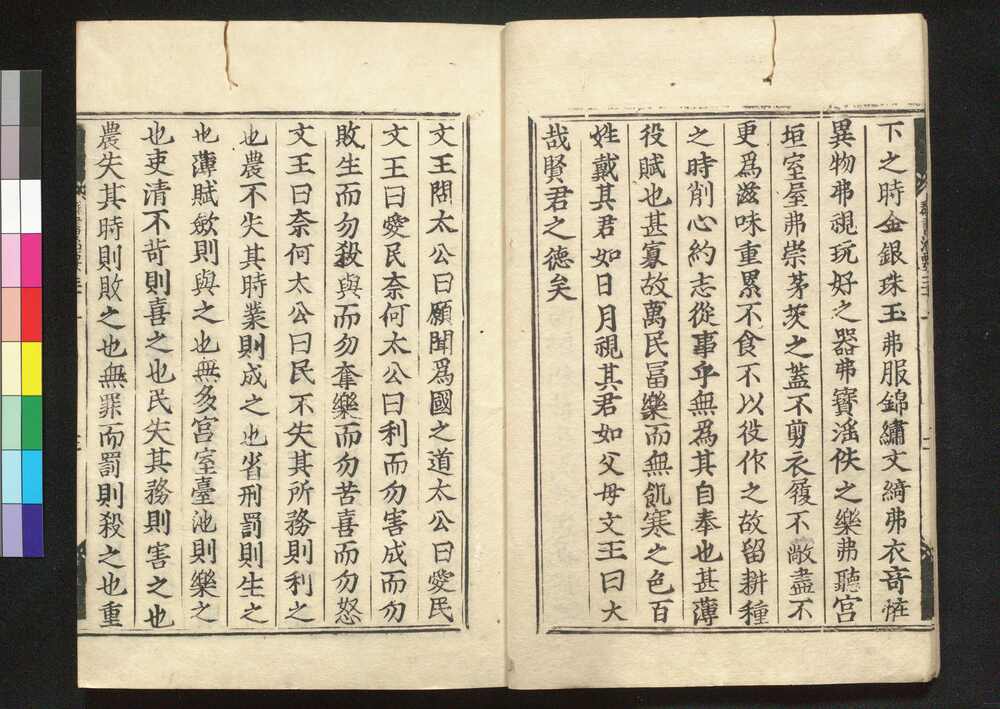 下之時金銀珠玉弗服錦繡文綺弗衣奇恠
異物弗視玩好之器弗寶滛佚之樂弗聽宮
垣室屋弗崇茅茨之蓋不剪衣履不敝盡不
更爲滋味重累不食不以役作之故留耕種
之時削心約志從事乎無爲其自奉也甚薄
役賦也甚寡故萬民冨樂而無飢寒之色百
姓戴其君如日月視其君如父母文王曰大
哉賢君之德矣
文王問太公曰願聞爲國之道太公曰愛民
文王曰愛民奈何太公曰利而勿害成而勿
敗生而勿殺與而勿奪樂而勿苦喜而勿怒
文王曰奈何太公曰民不失其所務則利之
也農不失其時業則成之也省刑罰則生之
也薄賦斂則與之也無多宮室臺池則樂之
也吏清不苛則喜之也民失其務則害之也
農失其時則敗之也無罪而罰則殺之也重